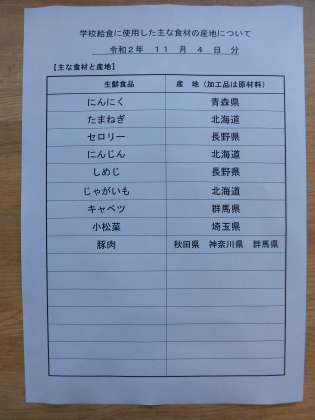 学校給食に使用した主な食材の産地について
令和２年　１１　月　４　日　分
【主な食材と産地】
生鮮食品　産　地（加工品は原材料）
にんにく　青森県
たまねぎ　北海道
セロリー　長野県
にんじん　北海道
しめじ　長野県
じゃがいも　北海道
キャベツ　群馬県
小松菜　埼玉県
豚肉　秋田県　神奈川県　群馬県